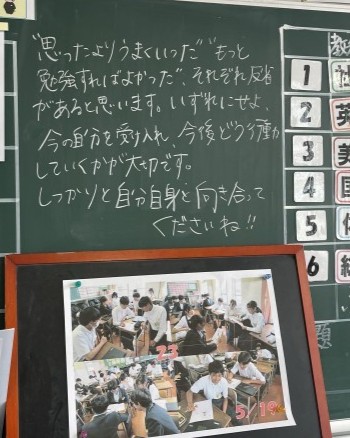 "思ったよりうまくいった" "もっと
勉強すればよかった"、それぞれ反省
があると思います。いずれにせよ、
今の自分を受け入れ、今後どう行動
していくかが大切です。
しっかりと自分自身と向き合って
くださいね!!
1
2 英
3 美
4 国
5
6
題
23
5/19